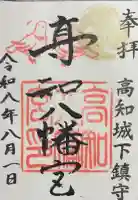 奉拝
高知城下鎮守
高知八幡宮
令和八年八月一日